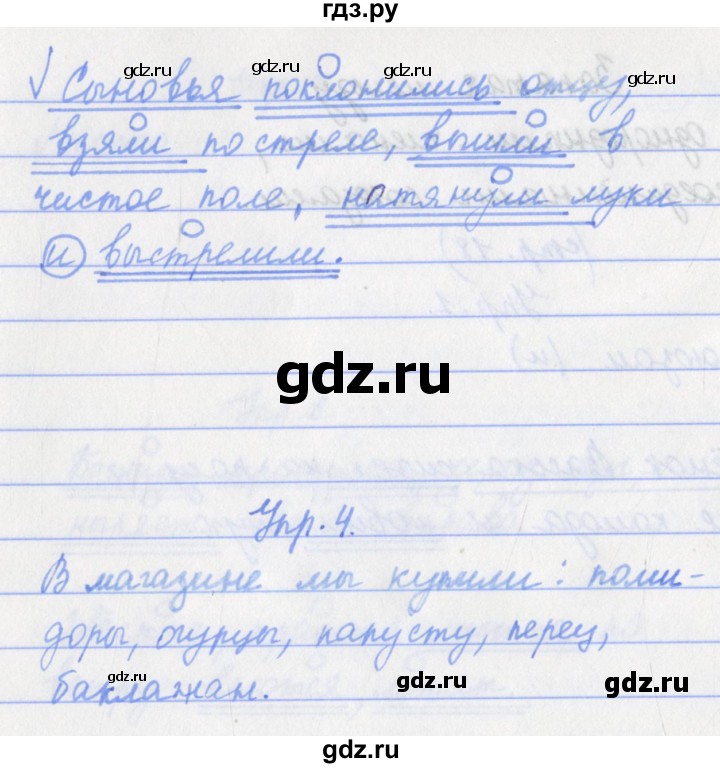 гдз.ру
gdz.ru gdz.ru gdz.ru gdz.ru
Сыновья поклонились отцу,
взяли по стреле, вышли в
чистое поле, натянули луки
и выстрелили.
gdz.ru
Упр. 4.
В магазине мы купили: поми-
доры, огурцы, капусту, перец,
баклажан.
gdz.ru gdz.ru gdz.ru
gdz.ru